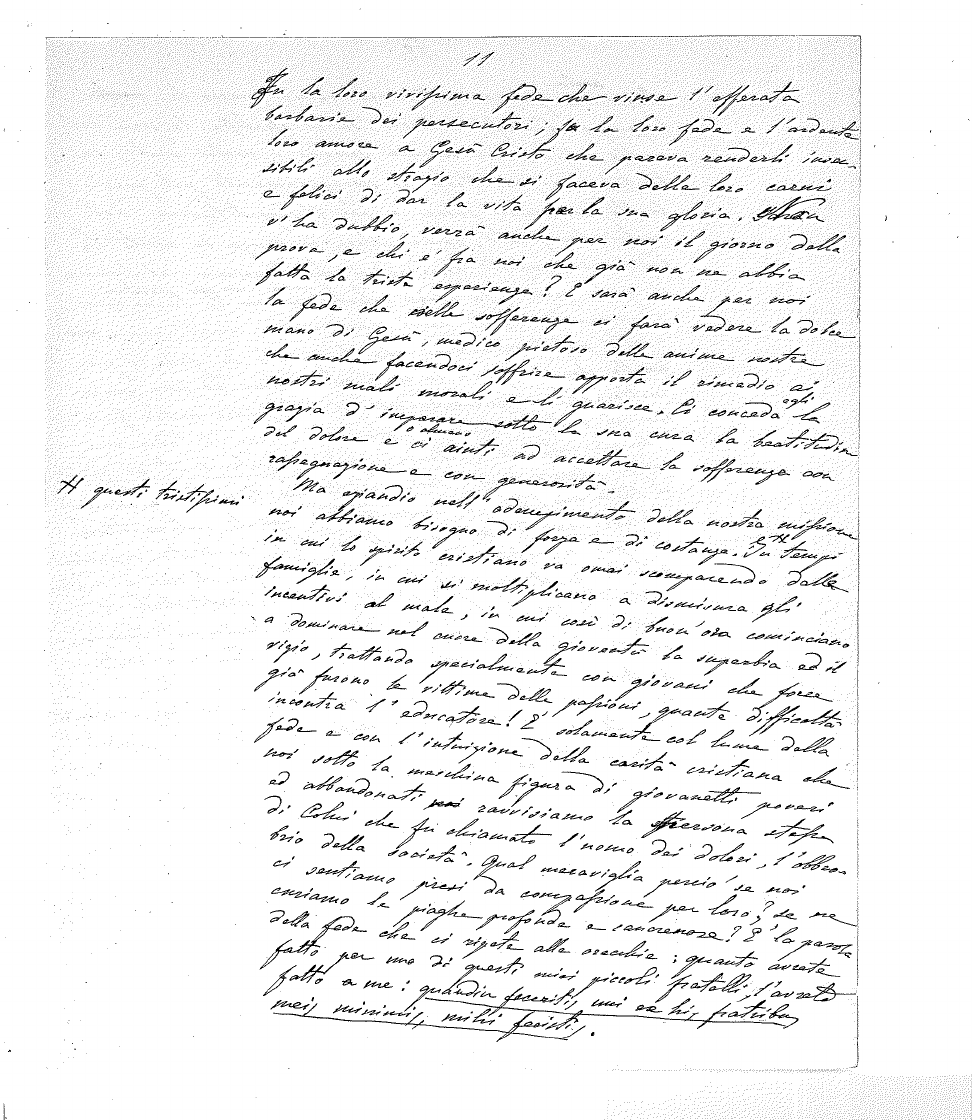 11
Fu la loro vivissima fede che vinse l'efferata
barbarie dei persecutori; fu la loro fede e l'ardente
loro amore a Gesù Cristo che pareva renderli insen-
sibili allo strazio che si faceva delle loro carni
e felici di dar la vita per la sua gloria. Non
v'ha dubbio, verrà anche per noi il giorno della
prova, e chi è fra noi che già non ne abbia
fatta la trista esperienza? E sarà anche per noi
la fede che nelle sofferenze ci farà vedere la dolce
mano di Gesù, medico pietoso delle anime nostre
che anche facendoci soffrire apporta il rimedio ai
nostri mali morali e li guarisce. Ci conceda egli la
grazia d'imparare sotto la sua cura la beatitudine
del dolore e o almeno ci aiuti ad accettare la sofferenza con
rassegnazione e con generosità.
Ma eziandio nell'adempimento della nostra missione
# questi tristissimi
noi abbiamo bisogno di forza e di costanza. In # tempi
in cui lo spirito cristiano va omai scomparendo dalle
famiglie, in cui si moltiplicano a dismisura gli
incentivi al male, in cui così di buon'ora cominciano
a dominare nel cuore della gioventù la superbia ed il
vizio, trattando specialmente con giovani che forse
già furono le vittime delle passioni, quante difficoltà
incontra l'educatore! E' solamente col lume della
fede e con l'intuizione della carità cristiana che
noi sotto la meschina figura di giovanetti poveri
ed abbandonati ravvisiamo la persona stessa
di Colui che fu chiamato l'uomo dei dolori, l'obbro-
brio della società. Qual meraviglia perciò se noi
ci sentiamo presi da compassione per loro? se ne
curiamo le piaghe profonde e cancrenose? E' la parola
della fede che ci ripete alle orecchie: quanto avrete
fatto per uno di questi miei piccoli fratelli, l'avrete
fatto a me: quandiu fecistis uni ex his fratribus
meis minimis, mihi fecistis.